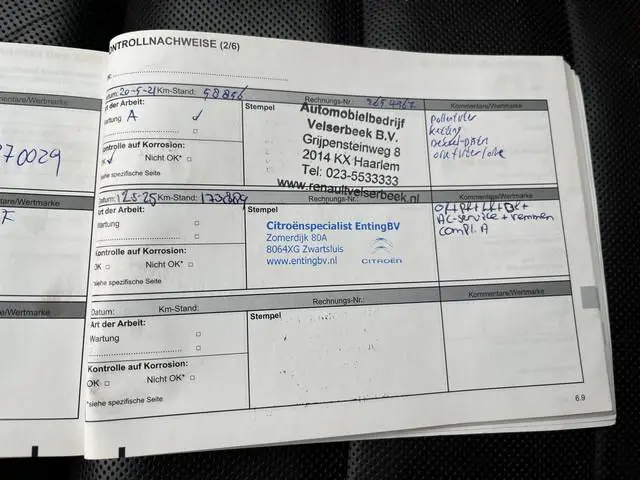 ONTROLLNACHWEISE (2/6)
mentare/Wertmarke
70029
F
mentare/Wertmarke
tum: 20-5-21 Km-Stand: 58856 Rechnungs-Nr.: Kommentare/Wertmarke
rt der Arbeit:
artung A
ontrolle auf Korrosion:
Nicht OK*
ehe spezifische Seite
Stempel
Automobielbedrijf
Velserbeek B.V.
Grijpensteinweg 8
2014 KX Haarlem
Tel: 023-5533333
www.renaultvelserbeek.nl
pollenfilter
ketting
oliefilter/olie
Datum: Km-Stand: 173889 Rechnungs-Nr.: Kommentare/Wertmarke
Art der Arbeit:
Wartung
Kontrolle auf Korrosion:
OK Nicht OK*
*siehe spezifische Seite
Stempel
Citroënspecialist EntingBV
Zomerdijk 80A
8064XG Zwartsluis
www.entingbv.nl
CITROËN
AC-service + remmen
compl. A
Datum: Km-Stand: Rechnungs-Nr.: Kommentare/Wertmarke
Art der Arbeit:
Wartung
Kontrolle auf Korrosion:
OK Nicht OK*
*siehe spezifische Seite
Stempel
6.9